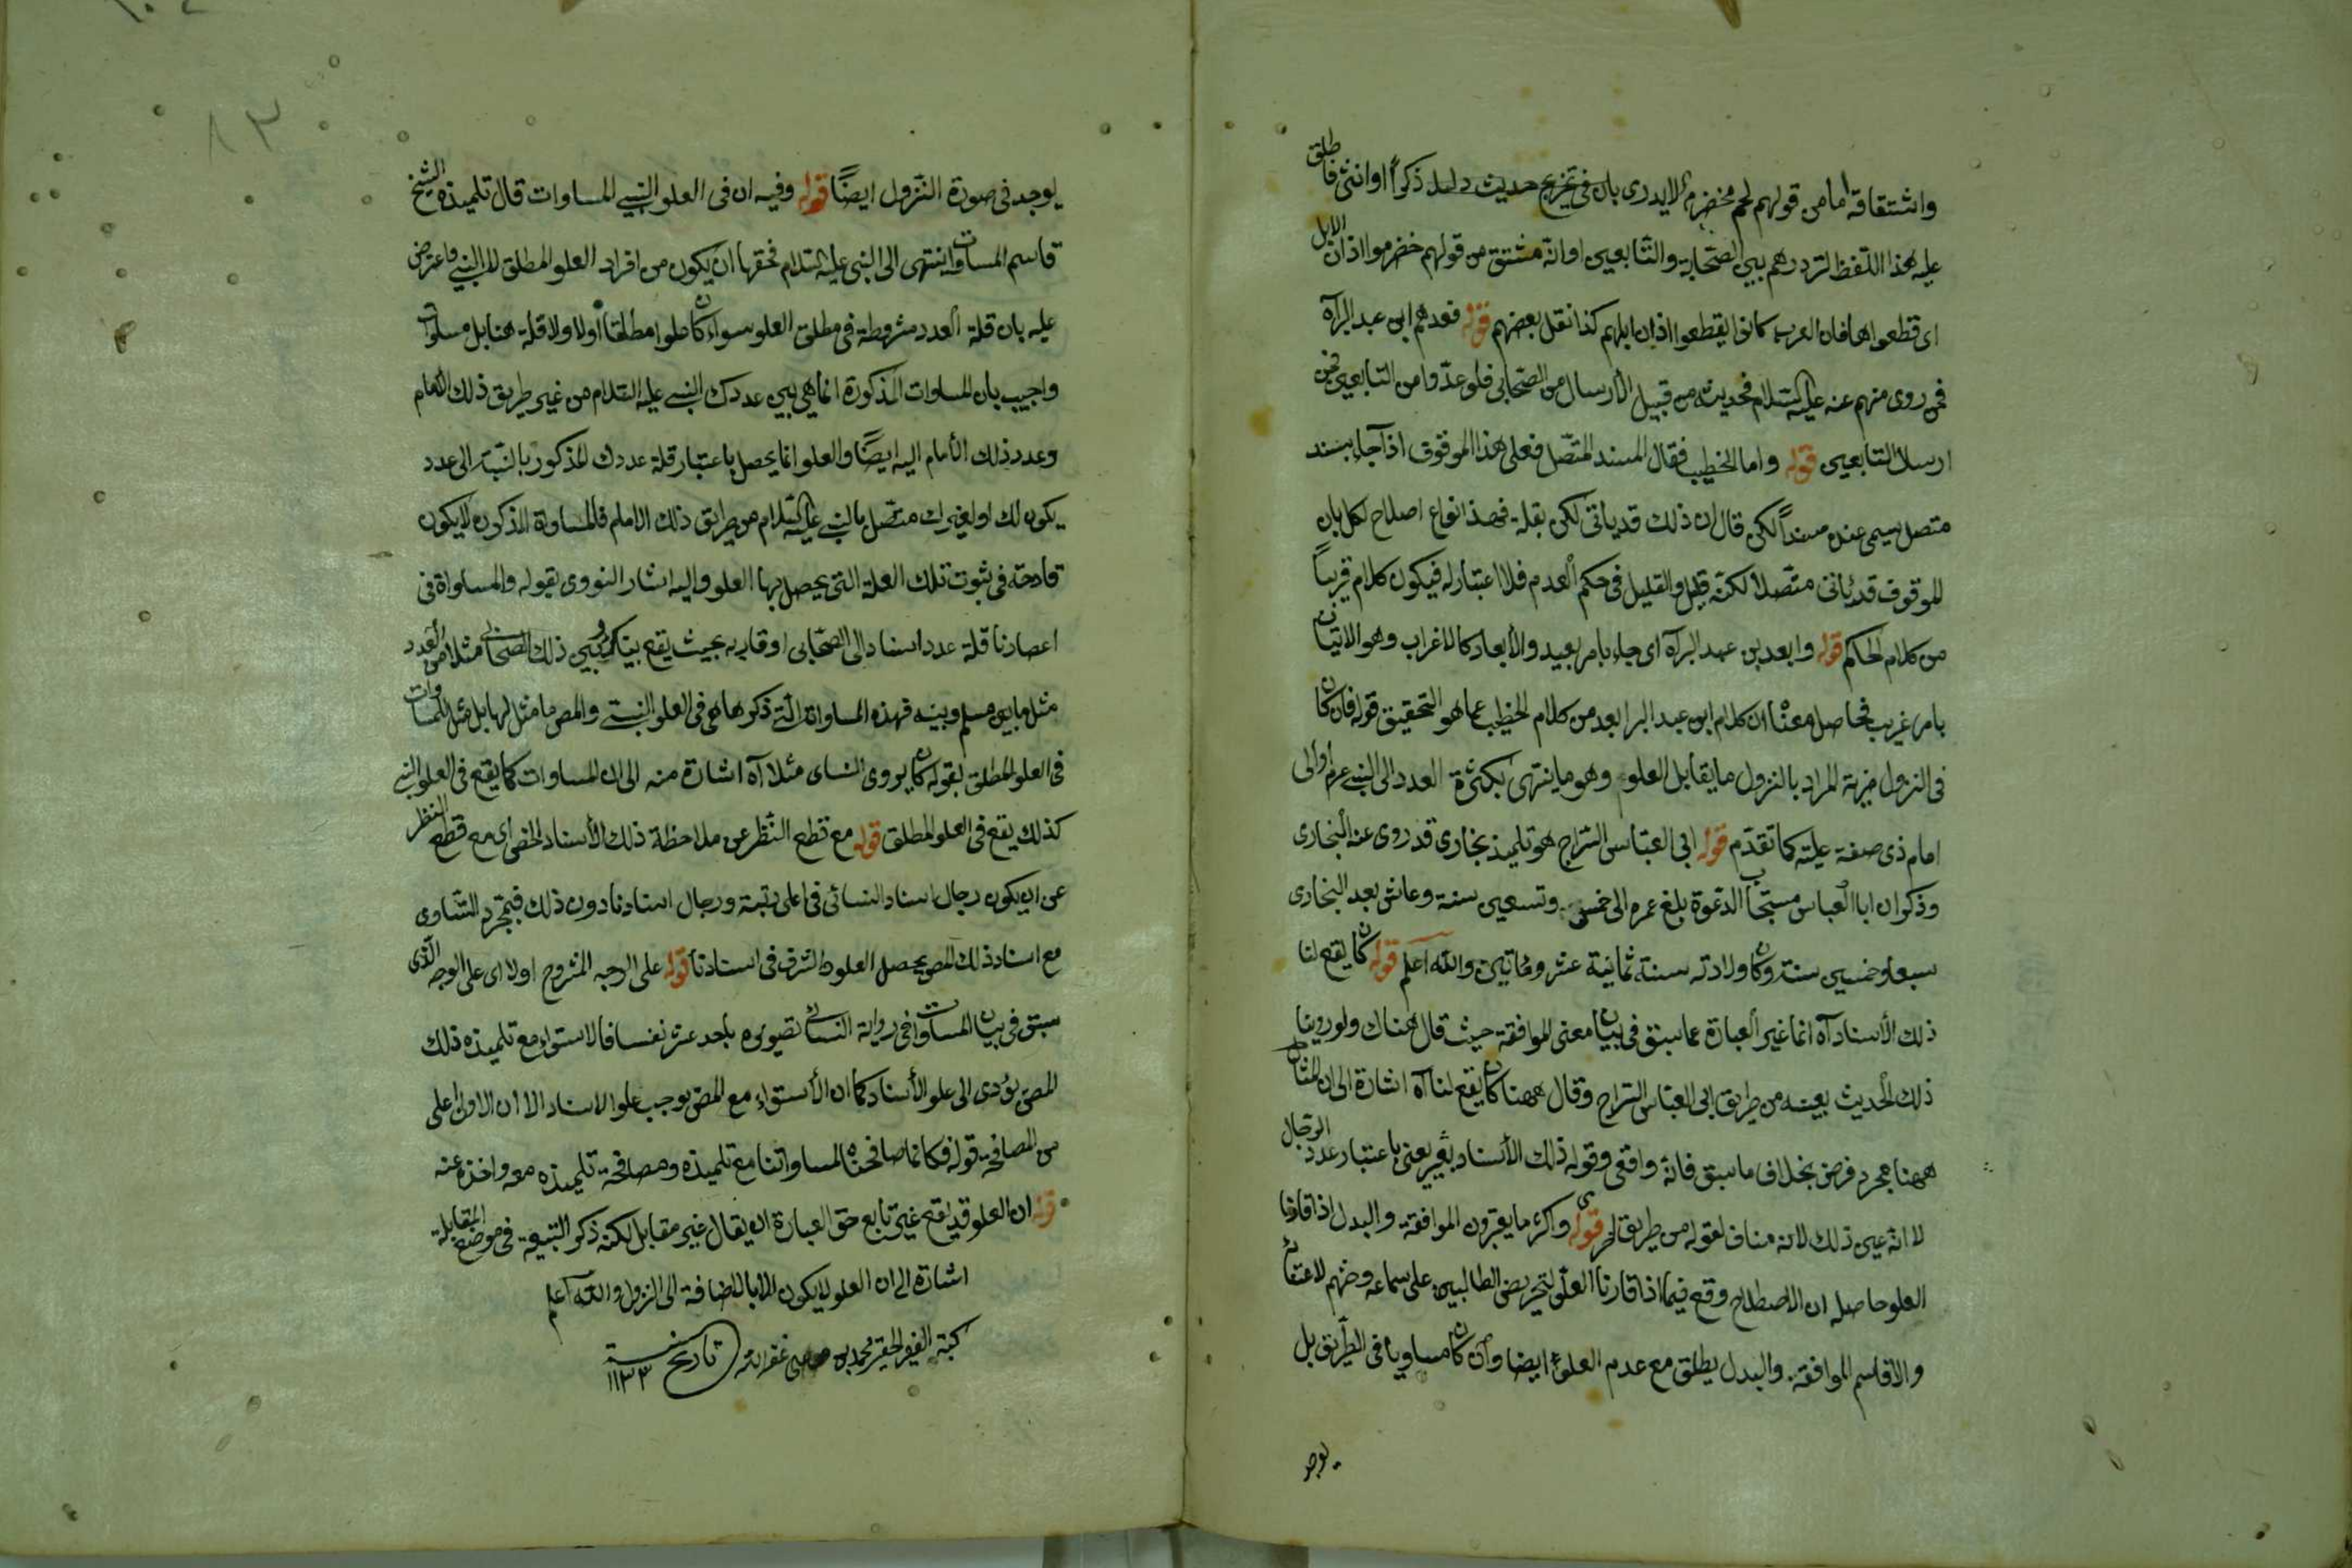 واشتقاقه اما من قولهم لحم مخضرم لا يدرى بان فى تخريج حديث دليل ذكراً او انثى فاطلق
عليه هذا اللفظ لترددهم بين الصحابة والتابعين او انه مشتق من قولهم خضرموا اذان الابل
اى قطعوا اهافان العرب كانوا يقطعوا اذان ابلهم كذا نقل بعضهم قوله فعدهم ابن عبد البر آه
فمن روى منهم عنه عليه السلام فحديثه من قبيل الارسال من الصحابى فلو عدّوا من التابعين فمن
ارسال التابعين قوله واما الخطيب فقال المسند المتصل فعلى هذا الموقوف اذا جاء بسند
متصل يسمى عنده مسنداً لكن قال ان ذلك قد ياتى لكن بقلة فهذا انواع اصلاح لكل بان
الموقوف قد ياتى متصلا لكنه قليل والقليل فى حكم العدم فلا اعتبار له فيكون كلام قريباً
من كلام الحاكم قوله وابعد بن عبد البر آه اى جاء بامر بعيد والابعاد كالاغراب وهو الاتيان
بامر غريب فحاصل معناه ان كلام ابن عبد البر ابعد من كلام الخطيب عما هو التحقيق قوله فان كان
فى النزول مزية المراد بالنزول ما يقابل العلو وهو ما ينتهى بكثرة العدد الى النبى عم او الى
امام ذى صفة علية كما تقدم قوله ابى العباس السراج هو تلميذ بخارى قد روى عنه البخارى
وذكر ان ابا العباس مستجاب الدعوة بلغ عمره الى خمس وتسعين سنة وعاش بعد البخارى
سبعا وخمسين سنة وكان ولادته سنة ثمانية عشر ومأتين والله اعلم قوله كان يقع لنا
ذلك الاسناد آه انما غير العبارة عما سبق فى بيان معنى الموافقة حيث قال هناك ولو روينا
ذلك الحديث بعينه من طريق ابى العباس السراج وقال ههنا كان يقع لنا آه اشارة الى ان المثال
ههنا مجرد فرض بخلاف ما سبق فانه واقعى وقوله ذلك الاسناد بغير يعنى باعتبار عدد الرجال
لا انه عين ذلك لانه مناف لقوله من طريق اخرى قوله واكثر ما يعتبرون الموافقة والبدل اذا قارنا
العلو حاصله ان الاصطلاح وقع فيما اذا قارنا العلو لتحريض الطالبين على سماعه وضمهم لاعتقاد
والا فاسم الموافقة والبدل يطلق مع عدم العلو ايضا وان كان مساويا فى الطريق بل
يوجد
يوجد فى صورة النزول ايضاً قوله وفيه ان فى العلو النسبى المساوات قال تلميذه الشيخ
قاسم المساوات ينتهى الى النبى عليه السلام فحقها ان يكون من افراد العلو المطلق لا النسبى واعترض
عليه بان قلة العدد مشروطة فى مطلق العلو سواء كان علوا مطلقا اولا ولا قلة هنا بل مساوات
واجيب بان المساوات المذكورة انما هى بين عددك النبى عليه السلام من غير طريق ذلك الامام
وعدد ذلك الامام اليه ايضاً والعلو انما يحصل باعتبار قلة عددك المذكور بالنسبة الى عدد
يكون لك او لغيرك متصل بالنبى عليه السلام من طريق ذلك الامام فالمساواة المذكورة لا يكون
قادحة فى ثبوت تلك العلة التى يحصل بها العلو واليه اشار النووى بقوله والمساواة فى
اعصارنا قلة عدد اسناد الى الصحابى او قاربه بحيث يقع بينك وبين ذلك الصحابى مثلا من العدد
مثل ما بين مسلم وبينه فهذه المساواة التى ذكرها هى فى العلو النسبى والمص ما مثل لها بل مثل للمساوات
فى العلو المطلق بقوله كان يروى النساى مثلا آه اشارة منه الى ان المساوات كما يقع فى العلو النسبى
كذلك يقع فى العلو المطلق قوله مع قطع النظر عن ملاحظة ذلك الاسناد الخاص اى مع قطع النظر
عن ان يكون رجال اسناد النسائى فى اعلى رتبة ورجال اسنادنا دون ذلك فبمجرد التساوى
مع اسناد ذلك المص يحصل العلو والشرف فى اسنادنا قوله على الوجه المشروح اولا اى على الوجه الذى
سبق فى بيان المساوات فى رواية النسائى تصويره باحد عشر نفسا فالاستواء مع تلميذه ذلك
المص يؤدى الى علو الاسناد كما ان الاستواء مع المص يوجب علو الاسناد الا ان الاول اعلى
من المصافحة قوله فكانما صافحناه المساواتنا مع تلميذه ومصافحة تلميذه معه واخذه عنه
قوله ان العلو قد يقع غير تابع حق العبارة ان يقال غير مقابل لكنه ذكر التبيعة فى موضع المقابلة
اشارة الى ان العلو لا يكون الا بالاضافة الى النزول والله اعلم
كتبه الفقير الحقير محمد بن غفر الله تاريخ سنة ١١٣٣
٨٣